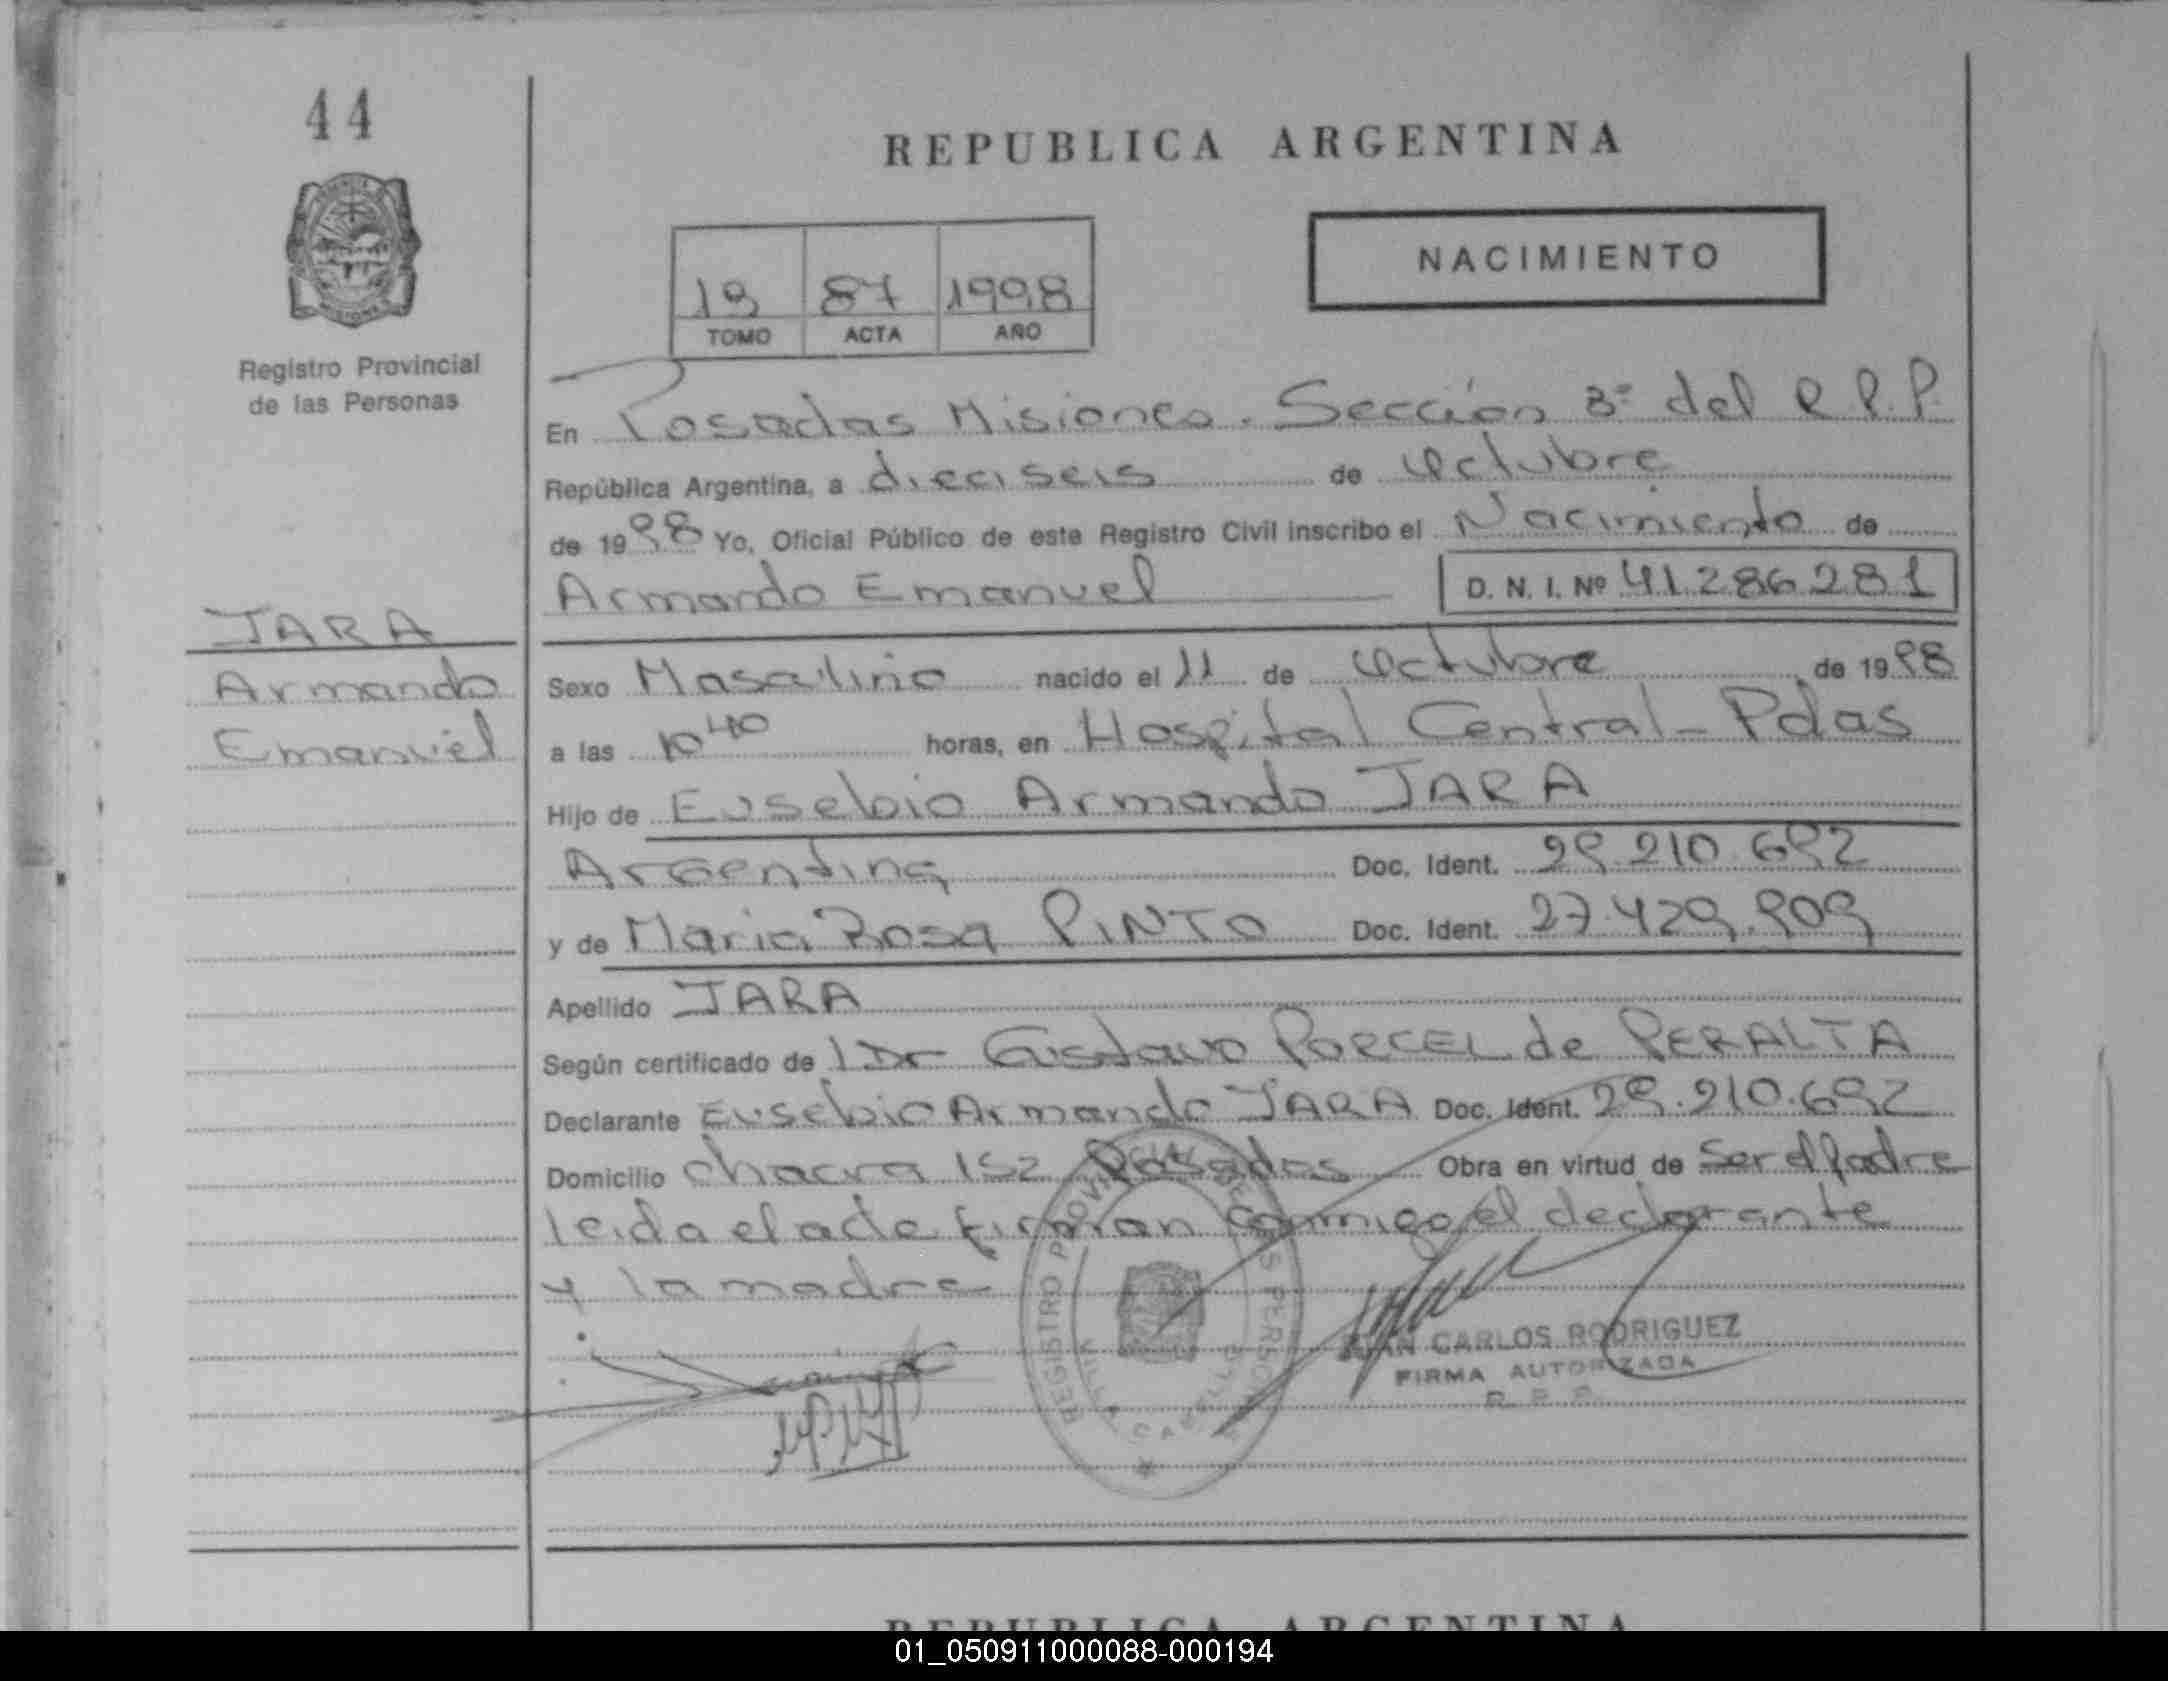 44
REPUBLICA ARGENTINA
NACIMIENTO
19 87 1998
TOMO ACTA AÑO
Registro Provincial
de las Personas
En Posadas Misiones. Sección 3º del R.P.P.
República Argentina, a dieciseis de Octubre
de 1998 Yo, Oficial Público de este Registro Civil inscribo el Nacimiento de
Armando Emanuel D. N. I. Nº 41.286.281
JARA
Armando
Emanuel
Sexo Masculino nacido el 11 de Octubre de 1998
a las 10 40 horas, en Hospital Central - Pdas
Hijo de Eusebio Armando JARA
Argentina Doc. Ident. 29.210.692
y de Maria Rosa PINTO Doc. Ident. 27.429.909
Apellido JARA
Según certificado de l Dr Gustavo PORCEL de PERALTA
Declarante Eusebio Armando JARA Doc. Ident. 29.210.692
Domicilio chacra 152 Posadas Obra en virtud de Ser el Padre
leida el acta firman conmigo el declarante
y la madre
REGISTRO PROVINCIAL DE LAS PERSONAS
VILLA CABELLO
JUAN CARLOS RODRIGUEZ
FIRMA AUTORIZADA
R. P. P.
REPUBLICA ARGENTINA
01_050911000088-000194